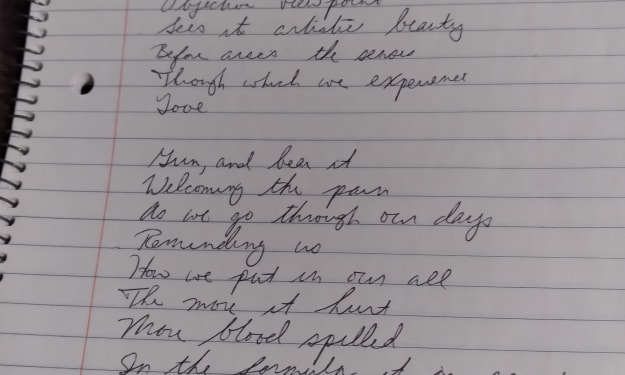 Objective viewpoint
Sees it artistic beauty
Before the senses
Though which we experience
Love
Grin, and bear it
Welcoming the pain
As we go through our days
Reminding us
How we put in our all
The more it hurt
More blood spilled
In the formula